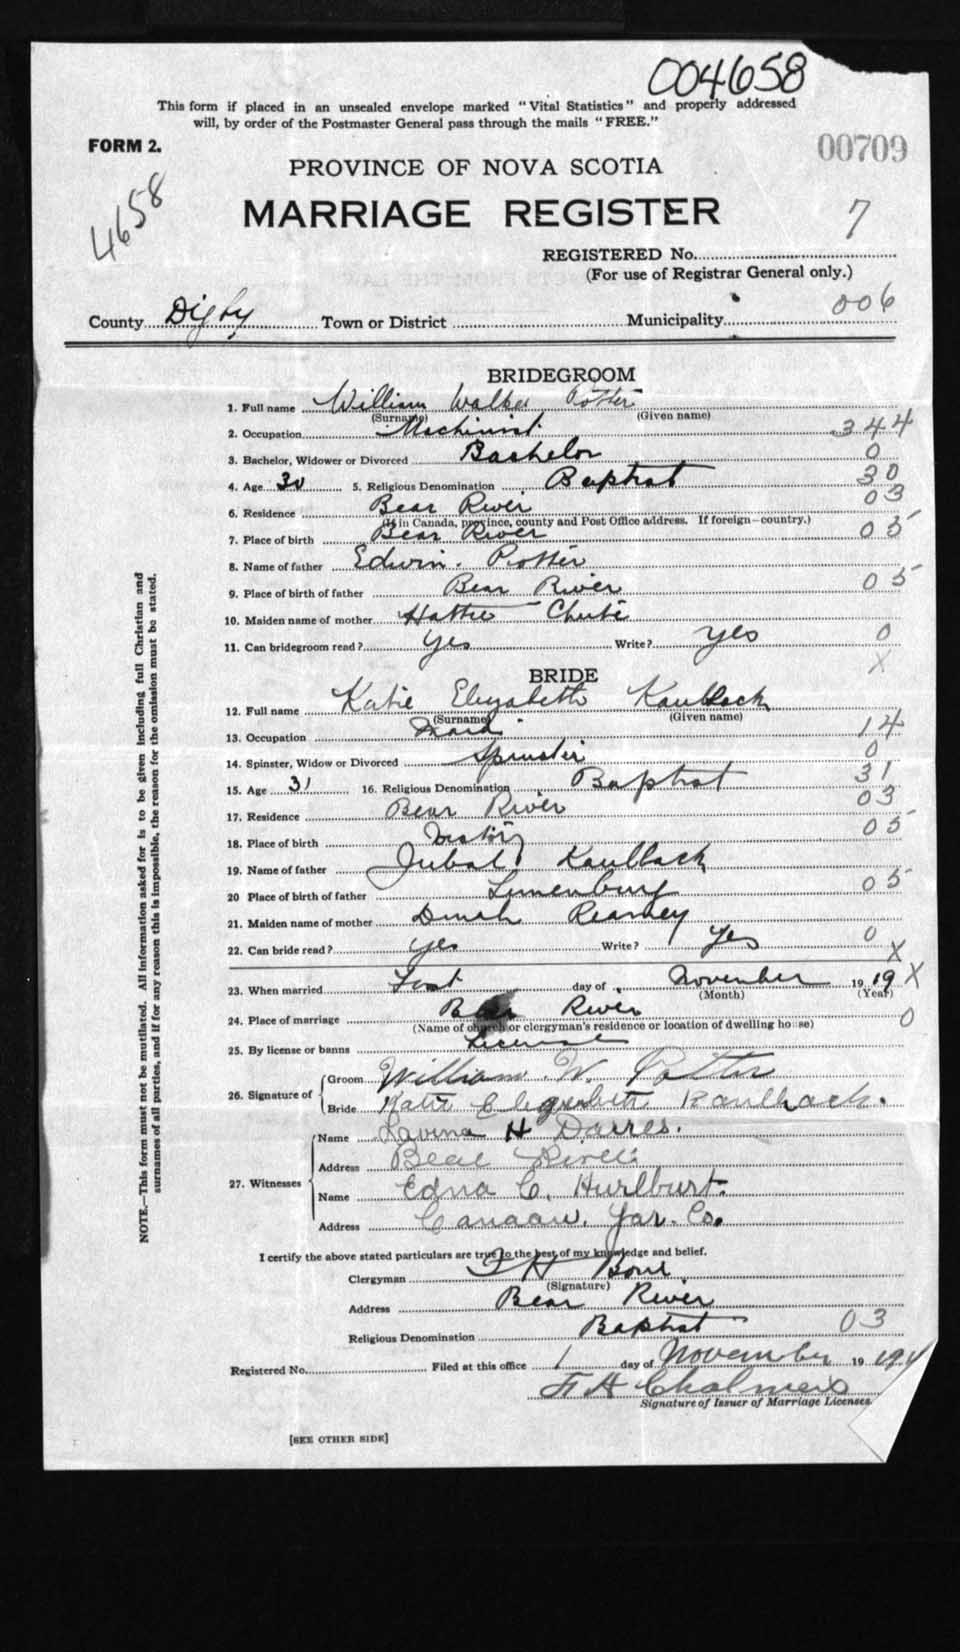 004658
This form if placed in an unsealed envelope marked "Vital Statistics" and properly addressed
will, by order of the Postmaster General pass through the mails "FREE."
FORM 2.
00709
PROVINCE OF NOVA SCOTIA
4658
MARRIAGE REGISTER
7
REGISTERED No.
(For use of Registrar General only.)
006
County Digby Town or District Municipality
BRIDEGROOM
1. Full name William Walker Potter
(Surname) (Given name)
2. Occupation Machinist 344
3. Bachelor, Widower or Divorced Bachelor 0
4. Age 30 5. Religious Denomination Baptist 30
6. Residence Bear River 03
(If in Canada, province, county and Post Office address. If foreign—country.)
7. Place of birth Bear River 05
8. Name of father Edwin Potter
9. Place of birth of father Bear River 05
10. Maiden name of mother Hattie Chute
11. Can bridegroom read? Yes Write? Yes 0
X
BRIDE
12. Full name Katie Elizabeth Kaulback
(Surname) (Given name)
13. Occupation Maid 14
14. Spinster, Widow or Divorced Spinster 0
15. Age 31 16. Religious Denomination Baptist 31
17. Residence Bear River 03
18. Place of birth 05
19. Name of father Jubal Kaulback
20 Place of birth of father Lunenburg 05
21. Maiden name of mother Dinah
22. Can bride read? yes Write? Yes 0
X
23. When married First day of November 1919 X
(Month) (Year)
24. Place of marriage Bear River 0
(Name of church or clergyman's residence or location of dwelling house)
25. By license or banns License
26. Signature of Groom William W. Potter
Bride Katie Elizabeth Kaulback.
27. Witnesses Name Lavina H Darres.
Address Bear River
Name Edna C. Hurlburt.
Address Canaan, Yar. Co.
I certify the above stated particulars are true to the best of my knowledge and belief.
Clergyman H
(Signature)
Address Bear River
Religious Denomination Baptist 03
Registered No. Filed at this office 1 day of November 19
F H Chalmers
Signature of Issuer of Marriage Licenses
[SEE OTHER SIDE]
NOTE.—This form must not be mutilated. All information asked for is to be given including full Christian and
surnames of all parties, and if for any reason this is impossible, the reason for the omission must be stated.